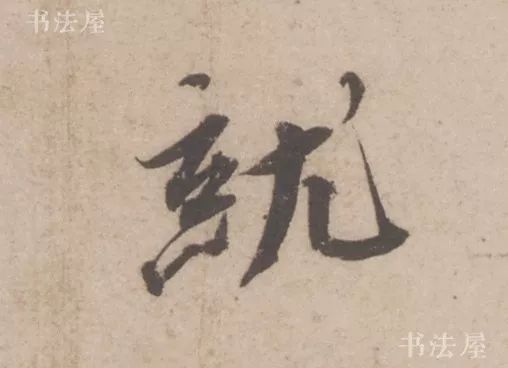 书法屋
就
书法屋